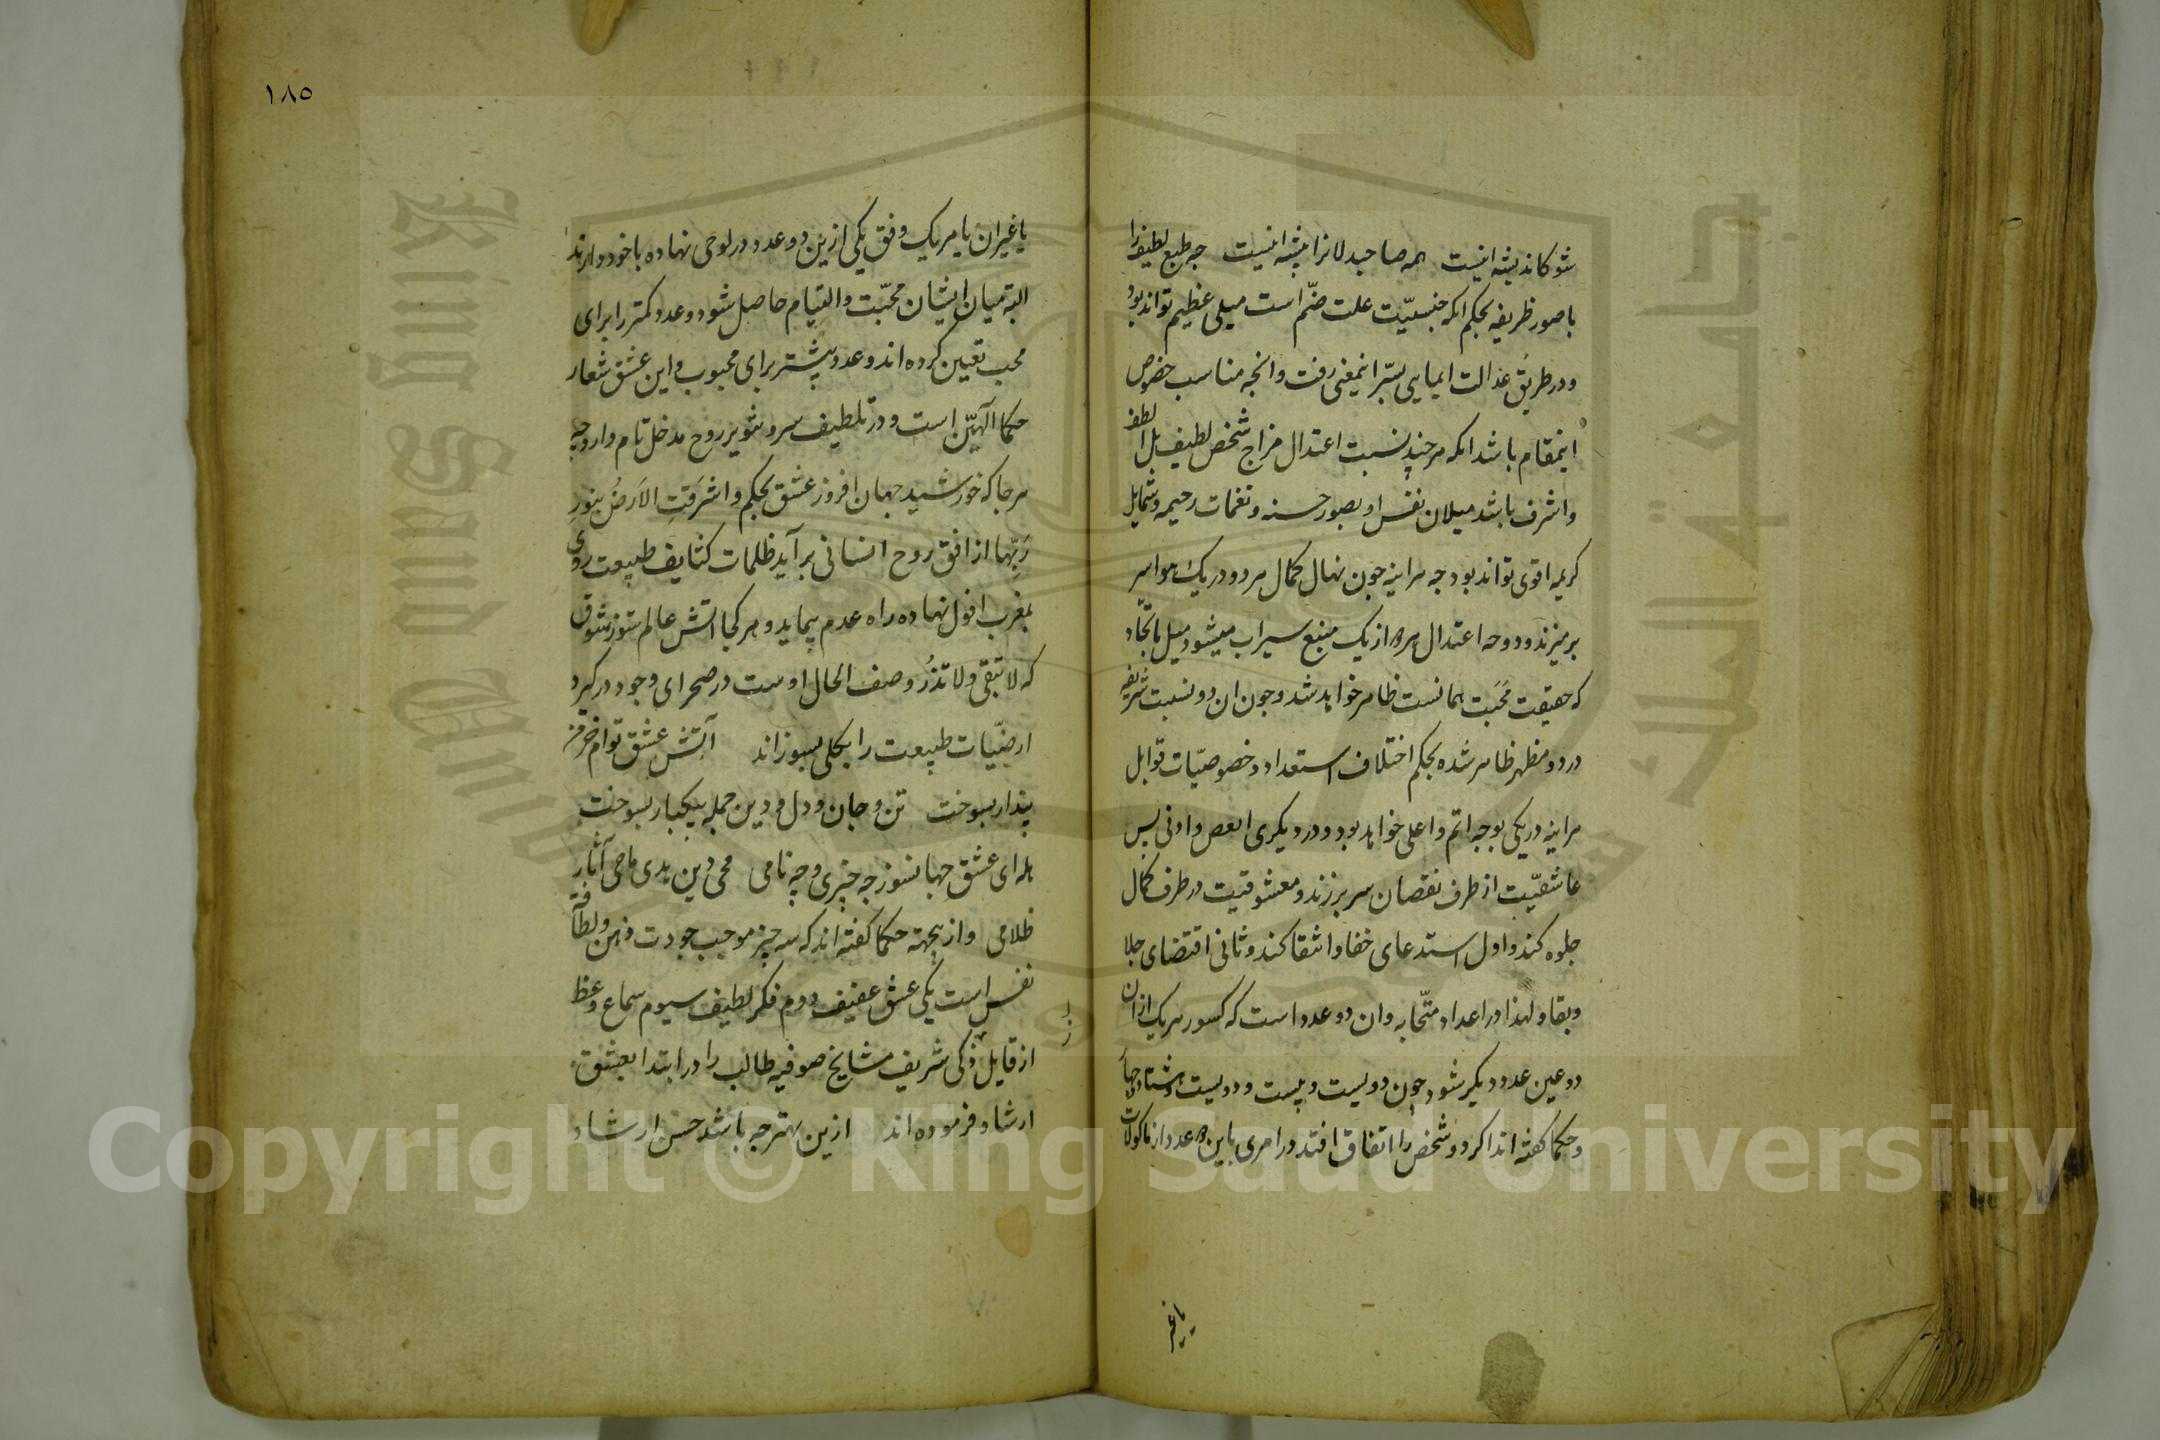 شو کاندیشه اینست همه صاحبدلانرا پیشه اینست چه طبع لطیف را
با صور ظریفه بحکم انکه جنسیّت علت ضمّ است میلی عظیم تواند بود
و در طریق عدالت ایمایی بسرّ اینمعنی رفت وانچه مناسب خصوص
اینمقام باشد انکه هر چند نسبت اعتدال مزاج شخص لطیف بل الطف
واشرف باشد میلان نفس او بصور حسنه و نغمات رحیمه و شمایل
کریمه اقوی تواند بود چه هر اینه چون نهال کمال هر دو در یک هوا سر
بر میزند و دوحه اعتدال هر دو از یک منبع سیراب میشود میل باتحّاد
که حقیقت محَبت همانست ظاهر خواهد شد و چون ان دو نسبت شریفه
در دو مظهر ظاهر شده بحکم اختلاف استعداد و خصوصیّات قوابل
هر اینه در یکی بوجه اتم واعلی خواهد بود و در دیگری انقص وادنی پس
عاشقیّت از طرف نقصان سر بر زند و معشوقیت در طرف کمال
جلوه کند و اول استدعای خفا و انتقا کند و ثانی اقتضای جلا
و بقا و لهذا در اعداد متحّابه وان دو عدد است که کسور هر یک ازان
دو عین عدد دیگر شود چون دویست و بیست و دویست و هشتاد و چهار
و حکما گفته اند اکر دو شخص را اتفاق افتد در امری باین دو عدد از ماکولات
یا غیر
١٨٥
یا غیر ان یا هر یک وفق یکی ازین دو عدد در لوحی نهاده با خود دارند
البته میان ایشان محبّت والتیام حاصل شود و عدد کمتر را برای
محب تعیین کرده اند و عدد بیشتر برای محبوب و این عشق شعار
حکما الهیّن است و در تلطیف سر و تنویر روح مدخل تام دارد چه
هر جا که خورشید جهان افروز عشق بحکم واشرَقتِ الاَرضُ بِنورِ
رَبِّها از افق روح انسانی بر آید ظلمات کثایف طبیعت روی
بمغرب افول نهاده راه عدم پیماید و هر کجا اتش عالم سوز شوق
که لا تبقی ولا تذرُ وصف الحال اوست در صحرای وجود در گیرد
ارضیّات طبیعت را بکلی بسوزاند آتش عشق توام خرقه
پندار بسوخت تن و جان و دل و دین جمله بیکبار بسوخت
هله ای عشق جهانسوز چه چیزی و چه نامی محی دین هدی ماحی آثار
ظلامی و از ینجهته حکما گفته اند که سه چیز موجب جودت ذهن و لطافت
نفس است یکی عشق عفیف دوم فکر لطیف سیوم سماع وعظ
از قایل ذکی شریف مشایخ صوفیه طالب را در ابتدا بعشق
ارشاد فرموده اند ازین بهتر چه باشد حسن ارشاد
Copyright © King Saud University